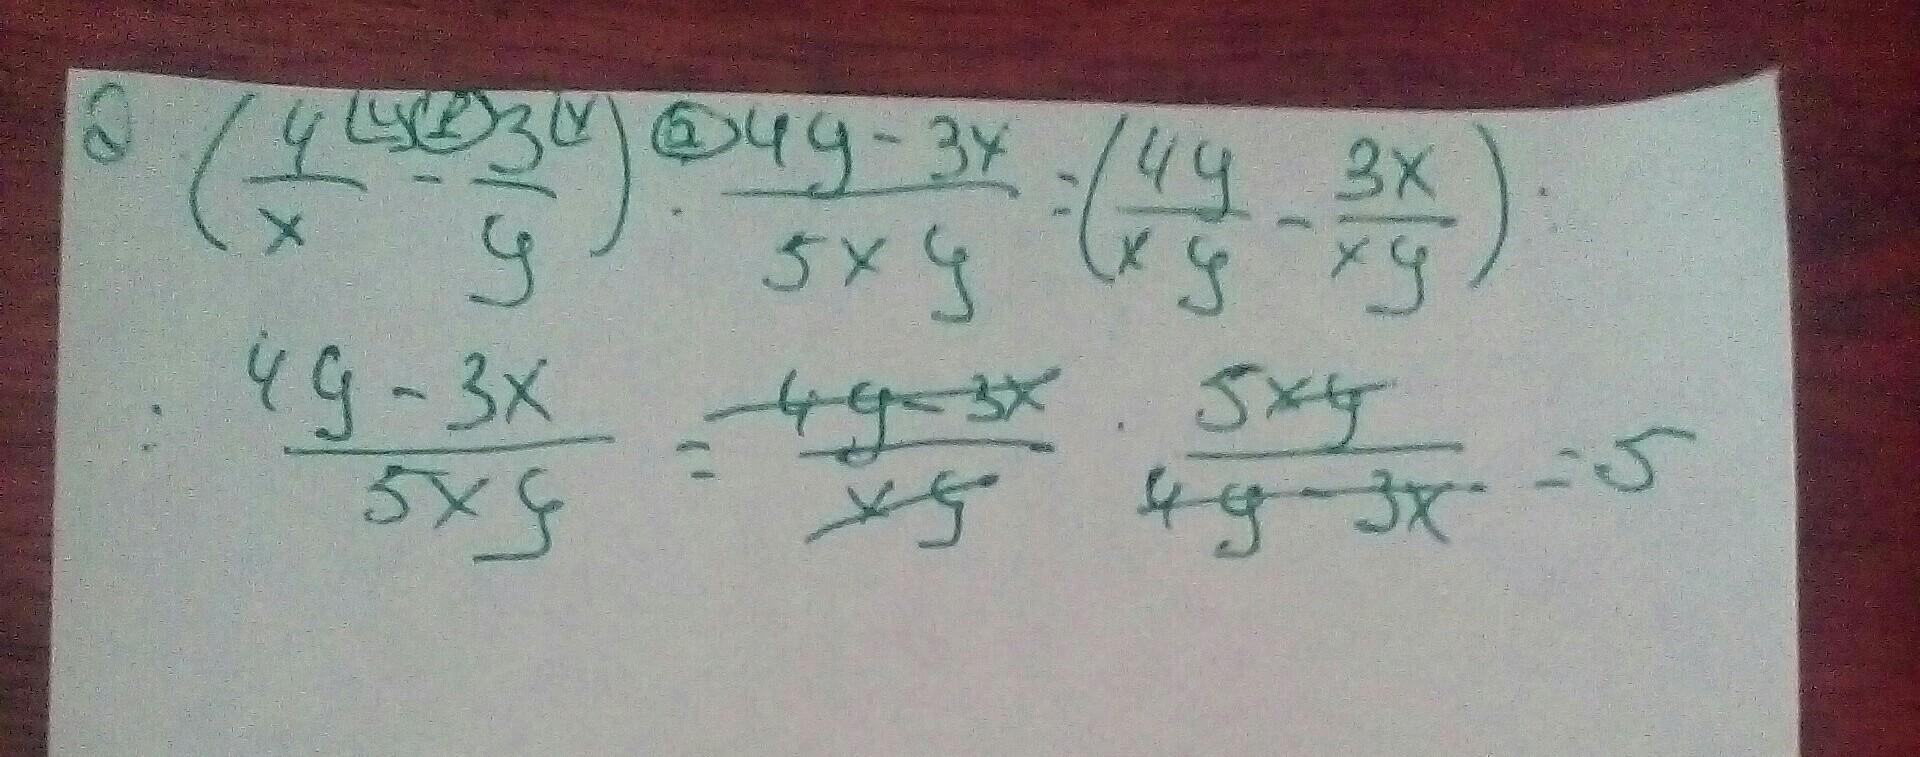 2. (4/x - 3/y) : (4y - 3x)/(5xy) = (4y/xy - 3x/xy) :
: (4y - 3x)/(5xy) = (4y - 3x)/(xy) · (5xy)/(4y - 3x) = 5